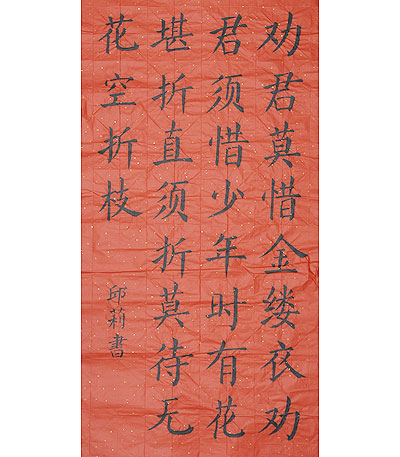 劝君莫惜金缕衣劝
君须惜少年时有花
堪折直须折莫待无
花空折枝
邱莉書